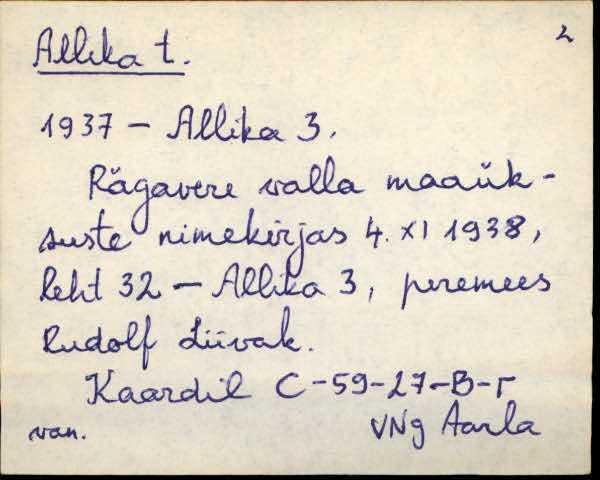 Allika t. 2
1937 – Allika 3.
Rägavere valla maaük-
suste nimekirjas 4. XI 1938,
leht 32 – Allika 3, peremees
Rudolf Liivak.
Kaardil C-59-27-B-г
van. VNg Aarla